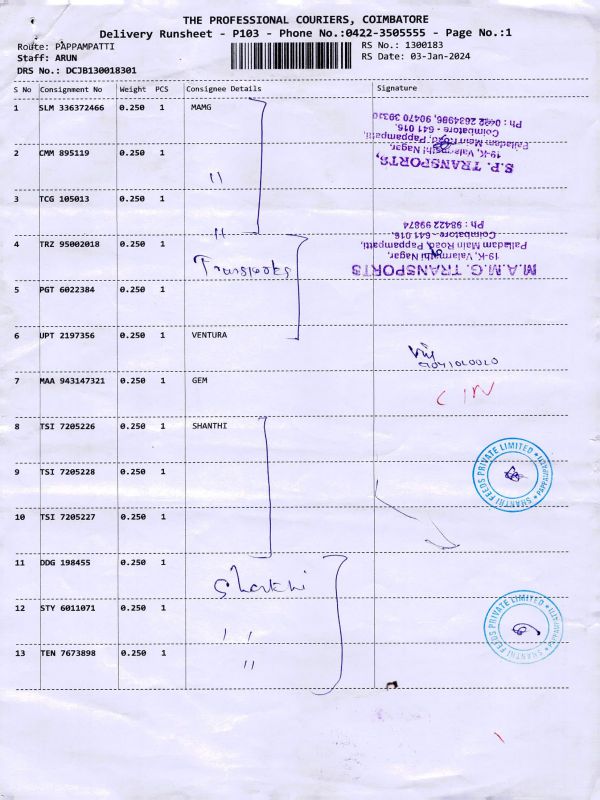 THE PROFESSIONAL COURIERS, COIMBATORE
Delivery Runsheet - P103 - Phone No.:0422-3505555 - Page No.:1
Route: PAPPAMPATTI RS No.: 1300183
Staff: ARUN RS Date: 03-Jan-2024
DRS No.: DCJB130018301
S No Consignment No Weight PCS Consignee Details Signature
1 SLM 336372466 0.250 1 MAMG
Ph : 0422 2634986, 90470 39310
Coimbatore - 641 016.
Palladam Main Road, Pappampatti,
19-K, Valarmathi Nagar,
S.P. TRANSPORTS,
2 CMM 895119 0.250 1
"
3 TCG 105013 0.250 1
"
Ph : 98422 99874
Coimbatore - 641 016.
Palladam Main Road, Pappampatti,
19-K, Valarmathi Nagar,
M.A.M.G. TRANSPORTS
4 TRZ 95002018 0.250 1
5 PGT 6022384 0.250 1
6 UPT 2197356 0.250 1 VENTURA
7 MAA 943147321 0.250 1 GEM
8 TSI 7205226 0.250 1 SHANTHI
SHANTHI FEEDS PRIVATE LIMITED
9 TSI 7205228 0.250 1
10 TSI 7205227 0.250 1
11 DDG 198455 0.250 1
Shanthi
12 STY 6011071 0.250 1
"
SHANTHI FEEDS PRIVATE LIMITED
13 TEN 7673898 0.250 1
"